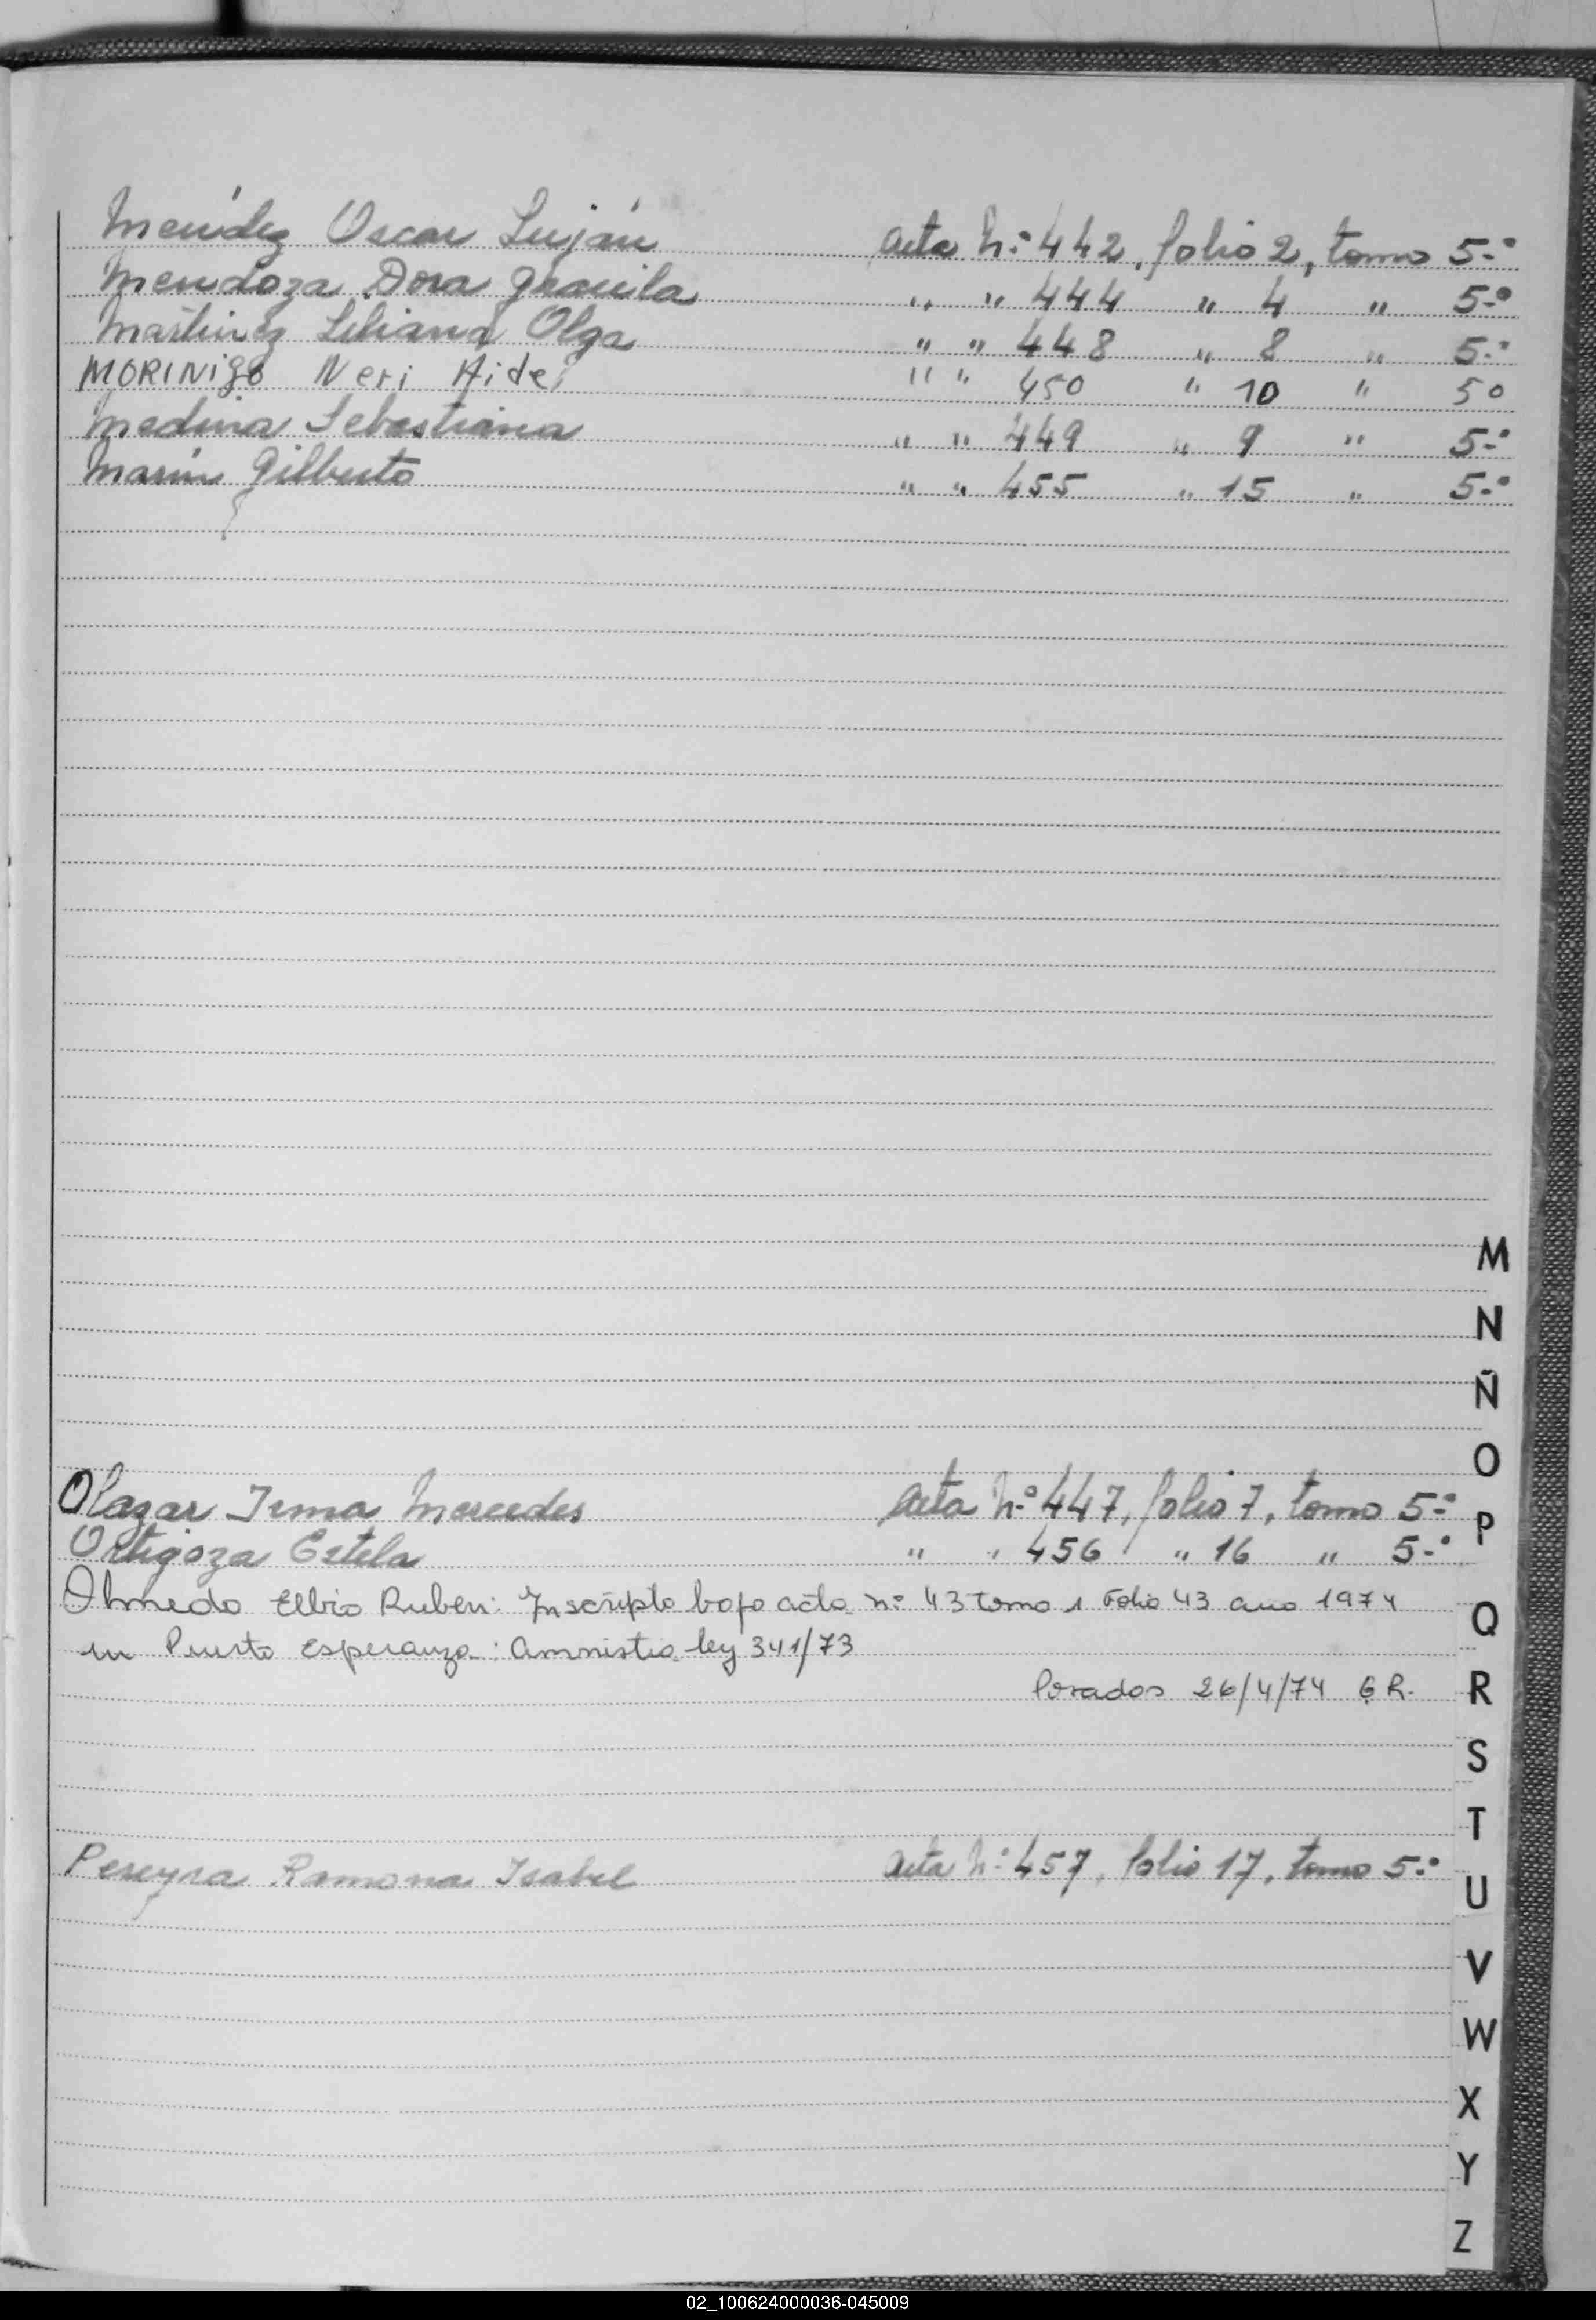 Meńdez Oscar Luján acta N.º 442, folio 2, tomo 5-º
Mendoza Dora Graciela " " 444 " 4 " 5-º
Martinez Liliana Olga " " 448 " 8 " 5-º
MORINIGO Neri Aide " " 450 " 10 " 5º
Medina Sebastiana " " 449 " 9 " 5-º
Marín Gilberto " " 455 " 15 " 5-º
M
N
Ñ
O
Olazar Irma Mercedes acta N-º 447, folio 7, tomo 5-º
P
Ortigoza Estela " " 456 " 16 " 5-º
Olmedo Elbio Ruben: Inscripto bajo acta nº 43 tomo 1 Folio 43 ano 1974
Q
en Puerto Esperanza: Amnistia ley 341/73
Posadas 26/4/74 G R.
R
S
T
Pereyra Ramona Isabel acta N-º 457, folio 17, tomo 5-º
U
V
W
X
Y
Z
02_100624000036-045009